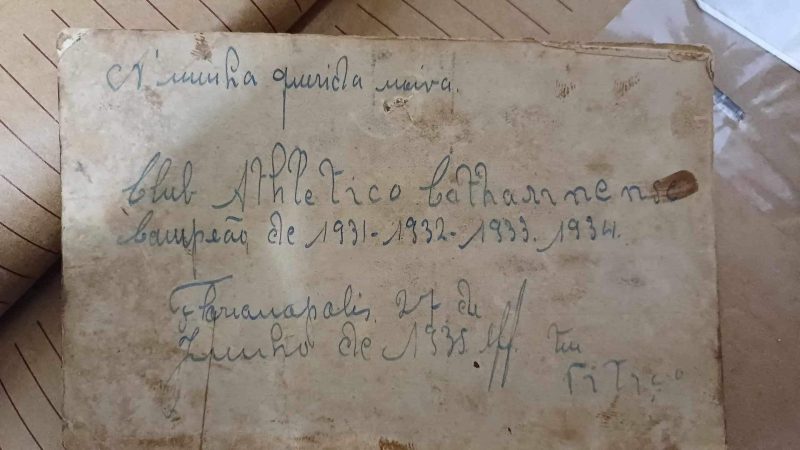 A' minha querida noiva.
Club Athletico Catharinense
Campeão de 1931-1932-1933. 1934.
Florianopolis. 27 de
Junho de 1935
teu
Titiço